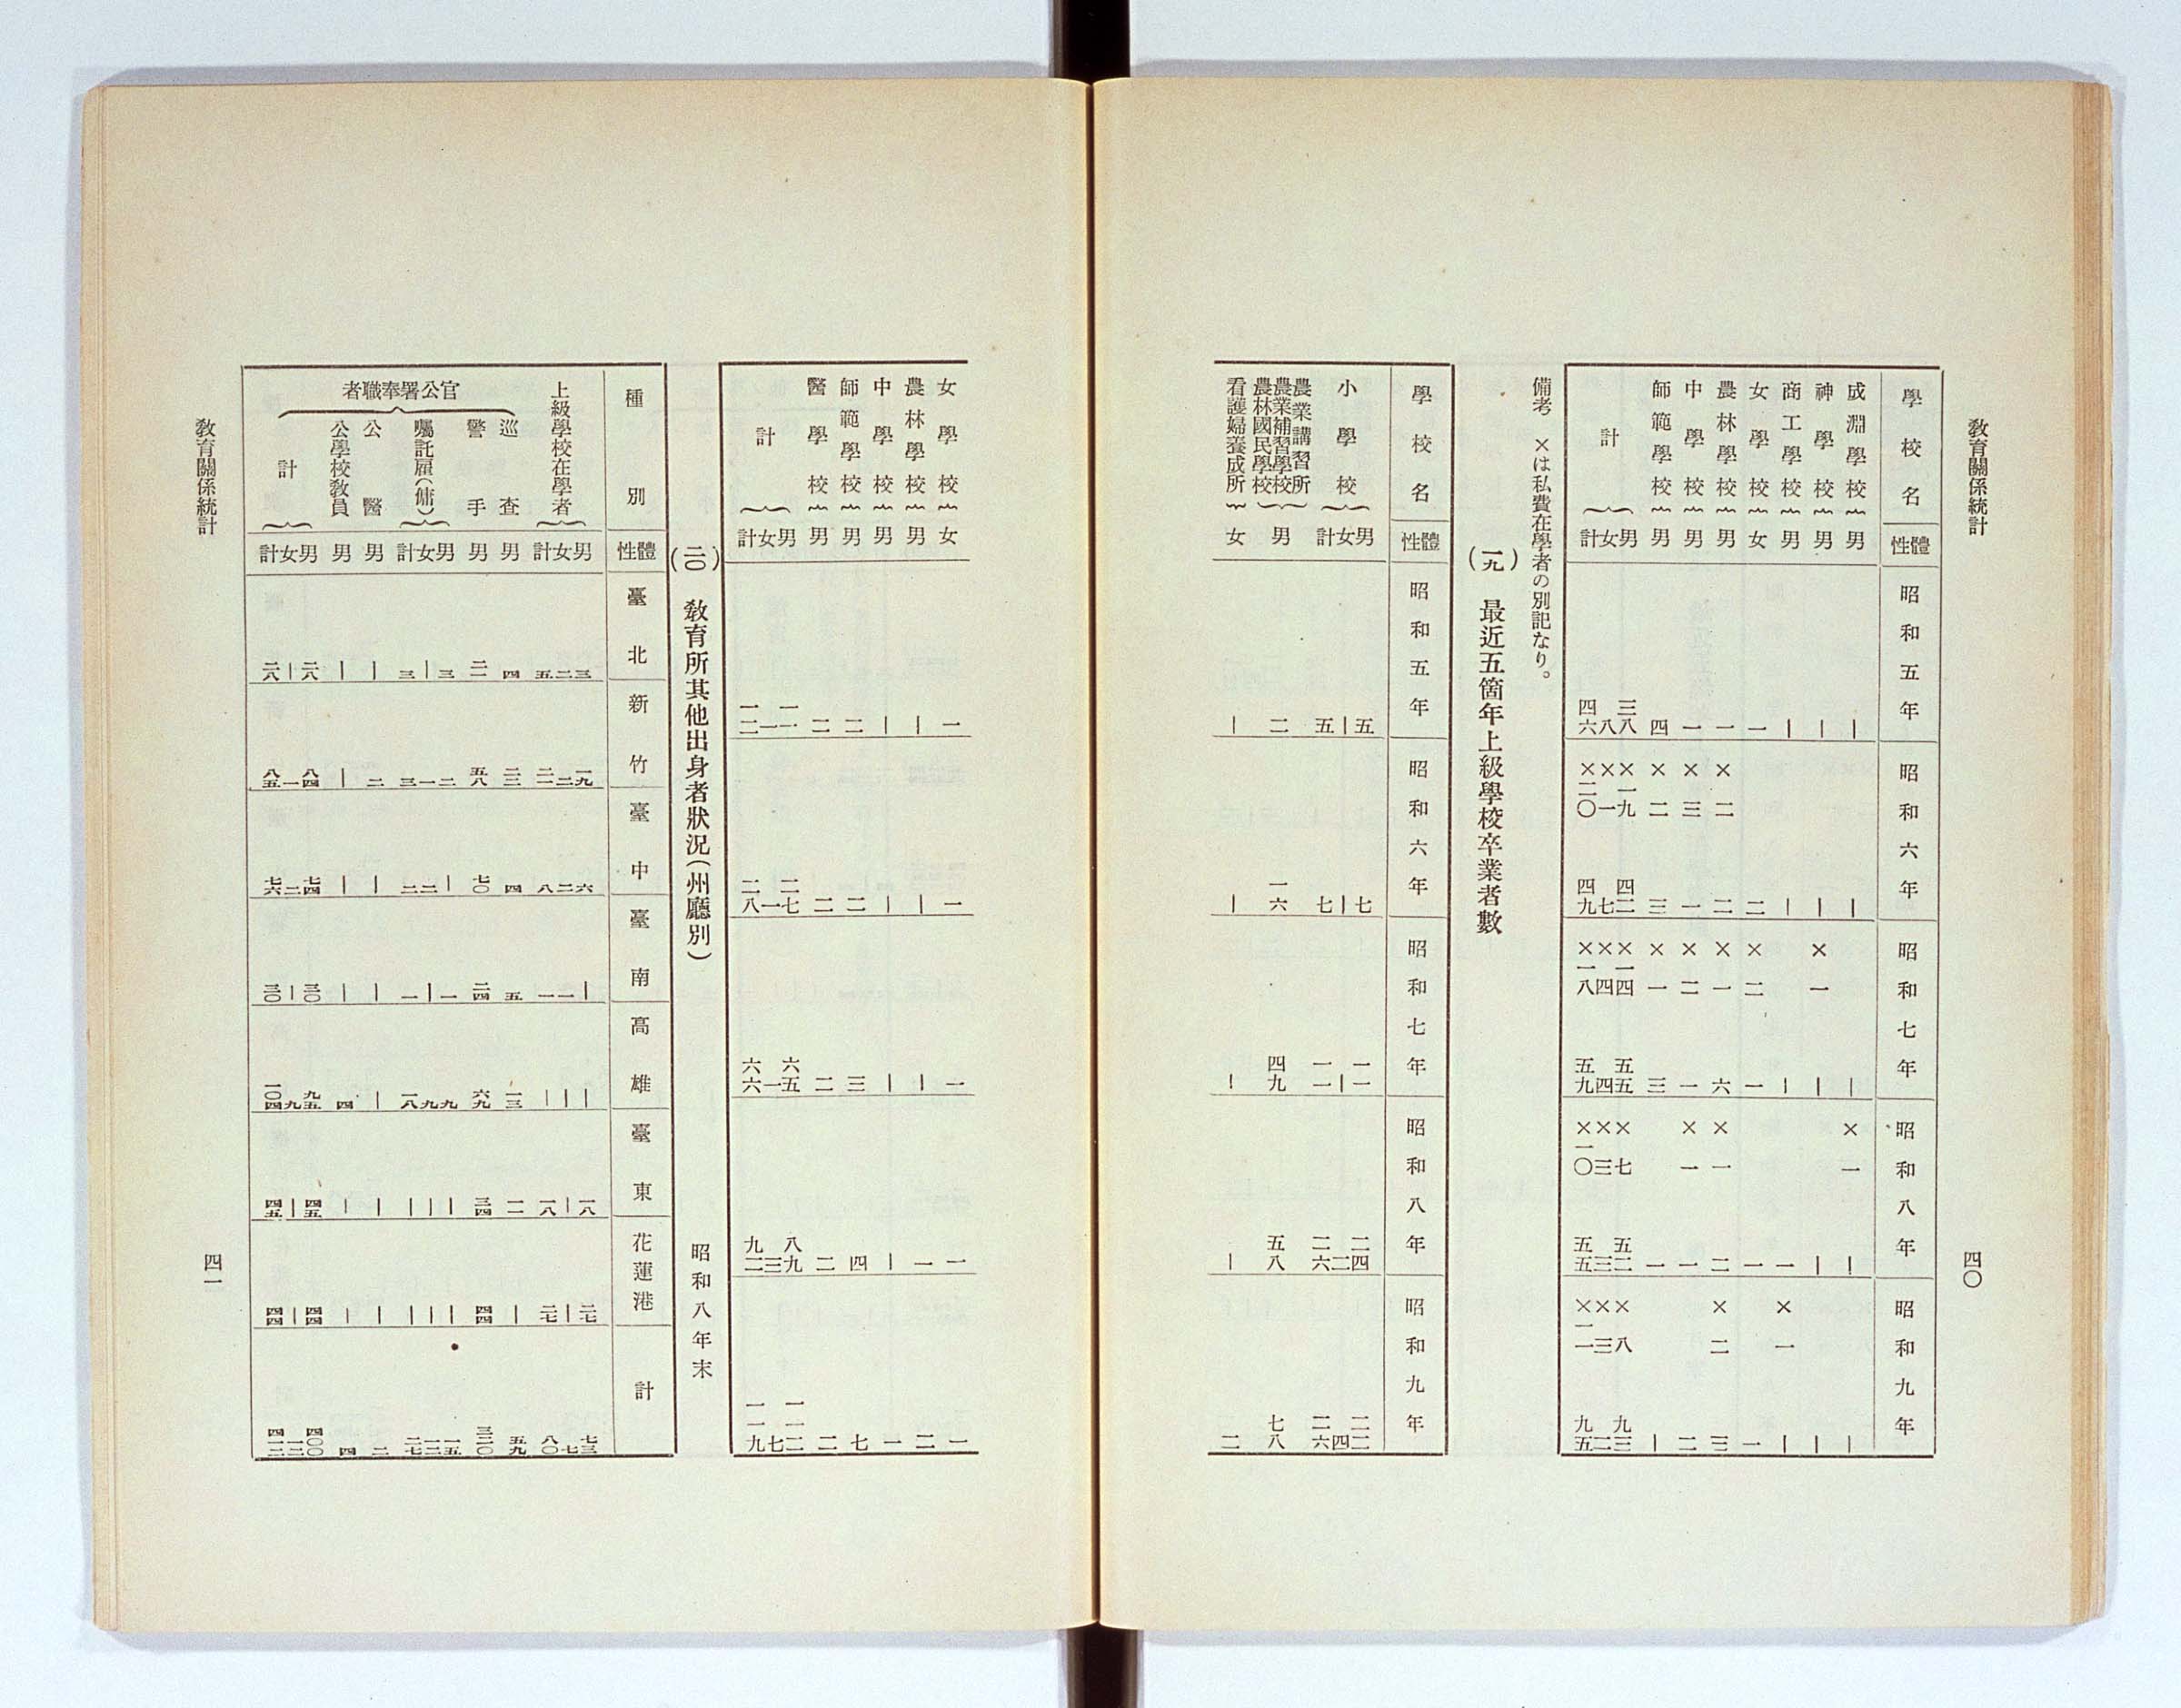 教育關係統計
四〇
學校名 性體 昭和五年 昭和六年 昭和七年 昭和八年 昭和九年
成淵學校 男 ｜ ｜ ｜ ×一 ｜ ｜
神學校 男 ｜ ｜ ×一 ｜ ｜ ｜
商工學校 男 ｜ ｜ ｜ 一 ×一 ｜
女學校 女 一 二 ×二 一 一 一
農林學校 男 一 ×二 二 ×一 六 ×一 二 ×二 三
中學校 男 一 ×三 一 ×二 一 ×一 一 二
師範學校 男 四 ×二 三 ×一 三 一 ｜
計 男 三八 ×一九 四二 ×一四 五五 ×七 五二 ×八 九三
女 八 ×一 七 ×四 四 ×三 三 ×三 二
計 四六 ×二〇 四九 ×一八 五九 ×一〇 五五 ×一一 九五
備考 ×は私費在學者の別記なり。
(一九) 最近五箇年上級學校卒業者數
學校名 性體 昭和五年 昭和六年 昭和七年 昭和八年 昭和九年
小學校 男 五 七 一一 二四 二二
女 ｜ ｜ ｜ 二 四
計 五 七 一一 二六 二六
農業講習所
農業補習學校
農林國民學校 男 二 一六 四九 五八 七八
看護婦養成所 女 ｜ ｜ ｜ ｜ 二
女學校 女 一 一 一 一 一
農林學校 男 ｜ ｜ ｜ 一 二
中學校 男 ｜ ｜ ｜ ｜ 一
師範學校 男 二 二 三 四 七
醫學校 男 二 二 二 二 二
計 男 一一 二七 六五 八九 一一二
女 一 一 一 三 七
計 一二 二八 六六 九二 一一九
(二〇) 教育所其他出身者狀況(州廳別) 昭和八年末
種別 性體 臺北 新竹 臺中 臺南 高雄 臺東 花蓮港 計
上級學校在學者 男 三 一九 六 ｜ ｜ 一八 二七 七三
女 二 二 二 一 ｜ ｜ ｜ 七
計 五 二一 八 一 ｜ 一八 二七 八〇
官公署奉職者
巡査 男 四 二二 四 五 一三 一一 ｜ 五九
警手 男 二一 五八 七〇 二四 六九 三四 四四 三二〇
囑託雇(傭) 男 三 二 ｜ 一 九 ｜ ｜ 一五
女 ｜ 一 二 ｜ 九 ｜ ｜ 一二
計 三 三 二 一 一八 ｜ ｜ 二七
公醫 男 ｜ 二 ｜ ｜ ｜ ｜ ｜ 二
公學校教員 男 ｜ ｜ ｜ ｜ 四 ｜ ｜ 四
計 男 二八 八四 七四 三〇 九五 四五 四四 四〇〇
女 ｜ 一 二 ｜ 九 ｜ ｜ 一二
計 二八 八五 七六 三〇 一〇四 四五 四四 四一二
教育關係統計
四一